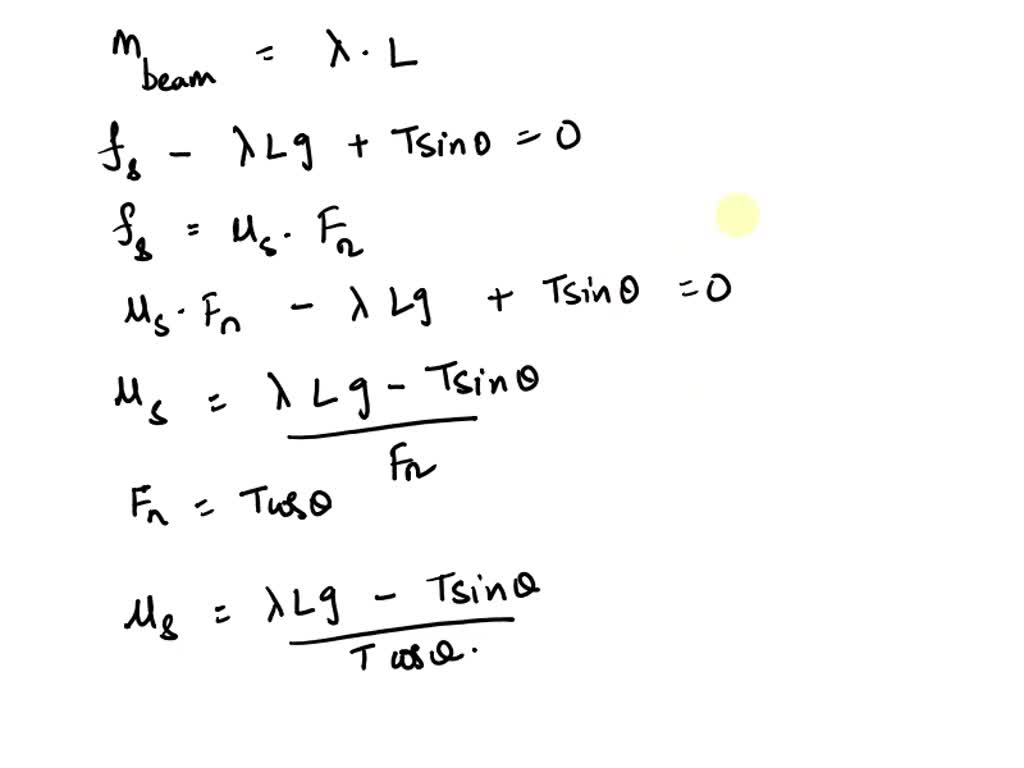 m beam = λ · L
fs - λLg + Tsinθ = 0
fs = μs · Fn
μs · Fn - λLg + Tsinθ = 0
μs = λLg - Tsinθ / Fn
Fn = Tcosθ
μs = λLg - Tsinθ / T cosθ.